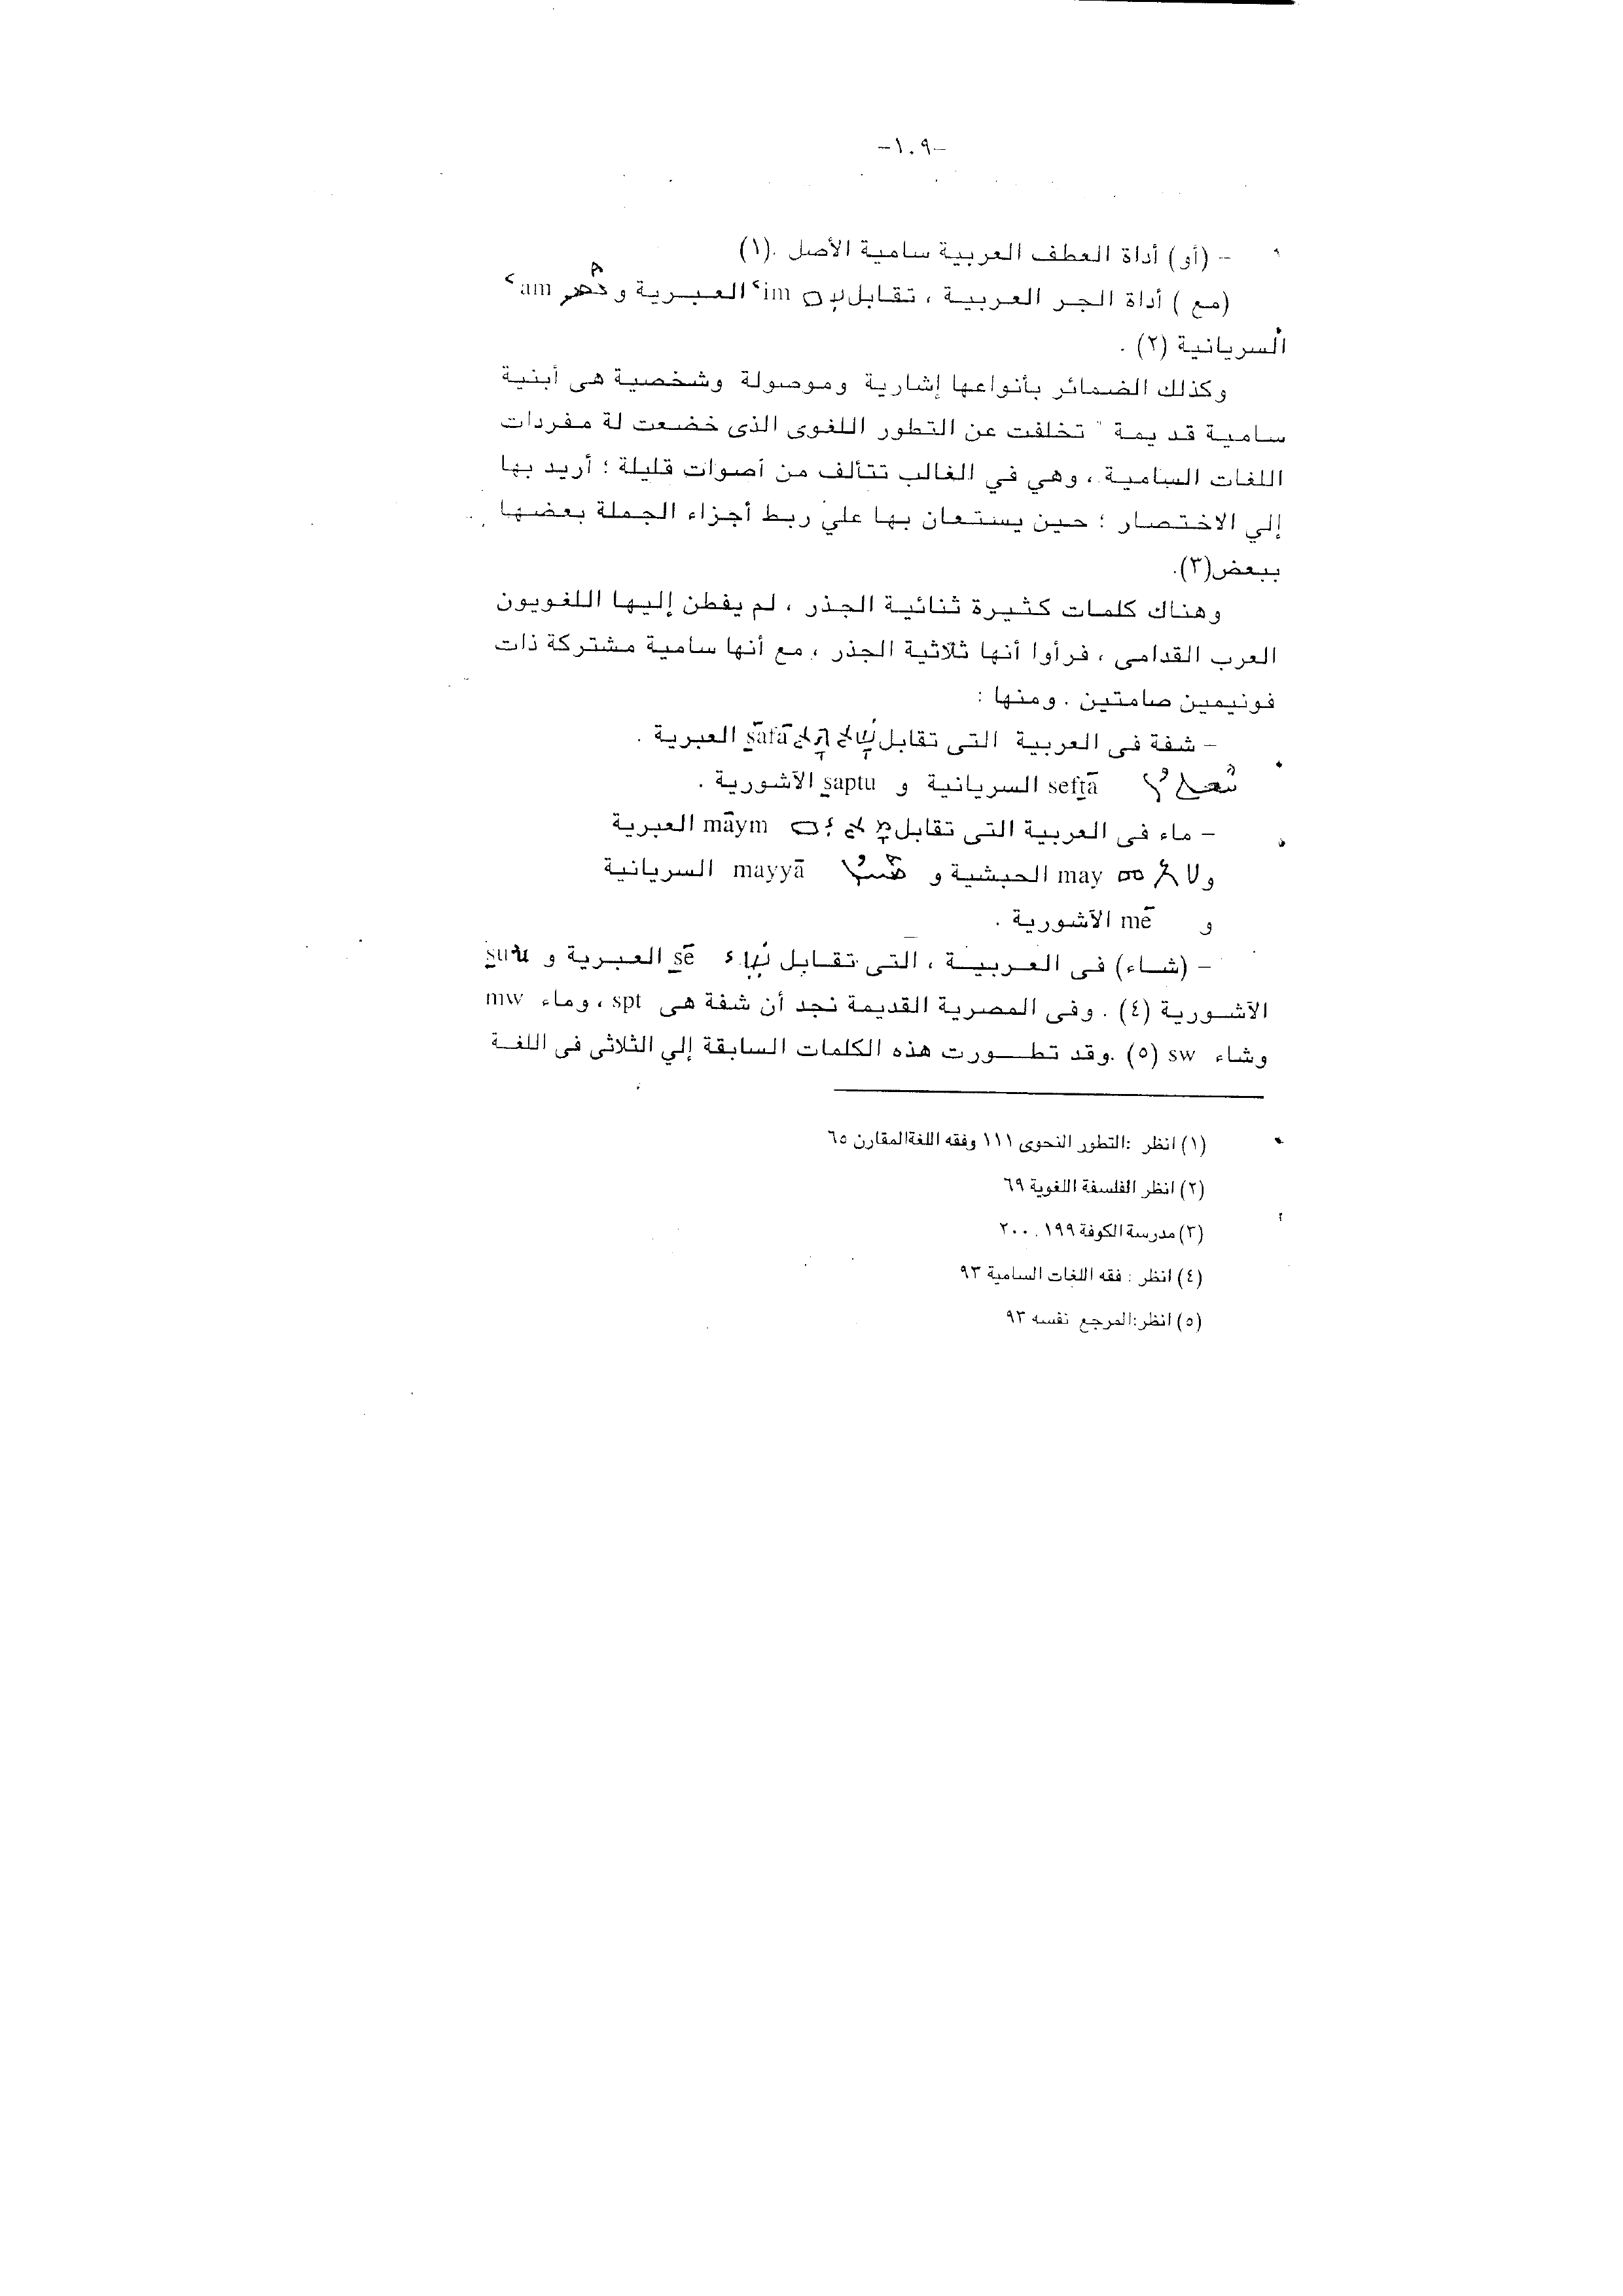 -١٠٩-
- (أو) أداة العطف العربية سامية الأصل .(١)
(مع ) أداة الجر العربية ، تقابل im العبرية و am
السريانية (٢) .
وكذلك الضمائر بأنواعها إشارية وموصولة وشخصية هى أبنية
سامية قديمة " تخلفت عن التطور اللغوى الذى خضعت لة مفردات
اللغات السامية ، وهي في الغالب تتألف من أصوات قليلة ؛ أريد بها
إلي الاختصار ؛ حين يستعان بها علي ربط أجزاء الجملة بعضها
ببعض(٣).
وهناك كلمات كثيرة ثنائية الجذر ، لم يفطن إليها اللغويون
العرب القدامى ، فرأوا أنها ثلاثية الجذر ، مع أنها سامية مشتركة ذات
فونيمين صامتين . ومنها :
- شفة فى العربية التى تقابل s̱āfā العبرية .
sefṯā السريانية و s̱aptu الآشورية .
- ماء فى العربية التى تقابل māym العبرية
و may الحبشية و mayyā السريانية
و mē الآشورية .
- (شاء) فى العربية ، التى تقابل s̱ē العبرية و
الآشورية (٤) . وفى المصرية القديمة نجد أن شفة هى spt ، وماء mw
وشاء sw (٥) .وقد تطورت هذه الكلمات السابقة إلي الثلاثى فى اللغة
(١) انظر :التطور النحوى ١١١ وفقه اللغةالمقارن ٦٥
(٢) انظر الفلسفة اللغوية ٦٩
(٣) مدرسة الكوفة ١٩٩ . ٢٠٠
(٤) انظر : فقه اللغات السامية ٩٣
(٥) انظر:المرجع نفسه ٩٣